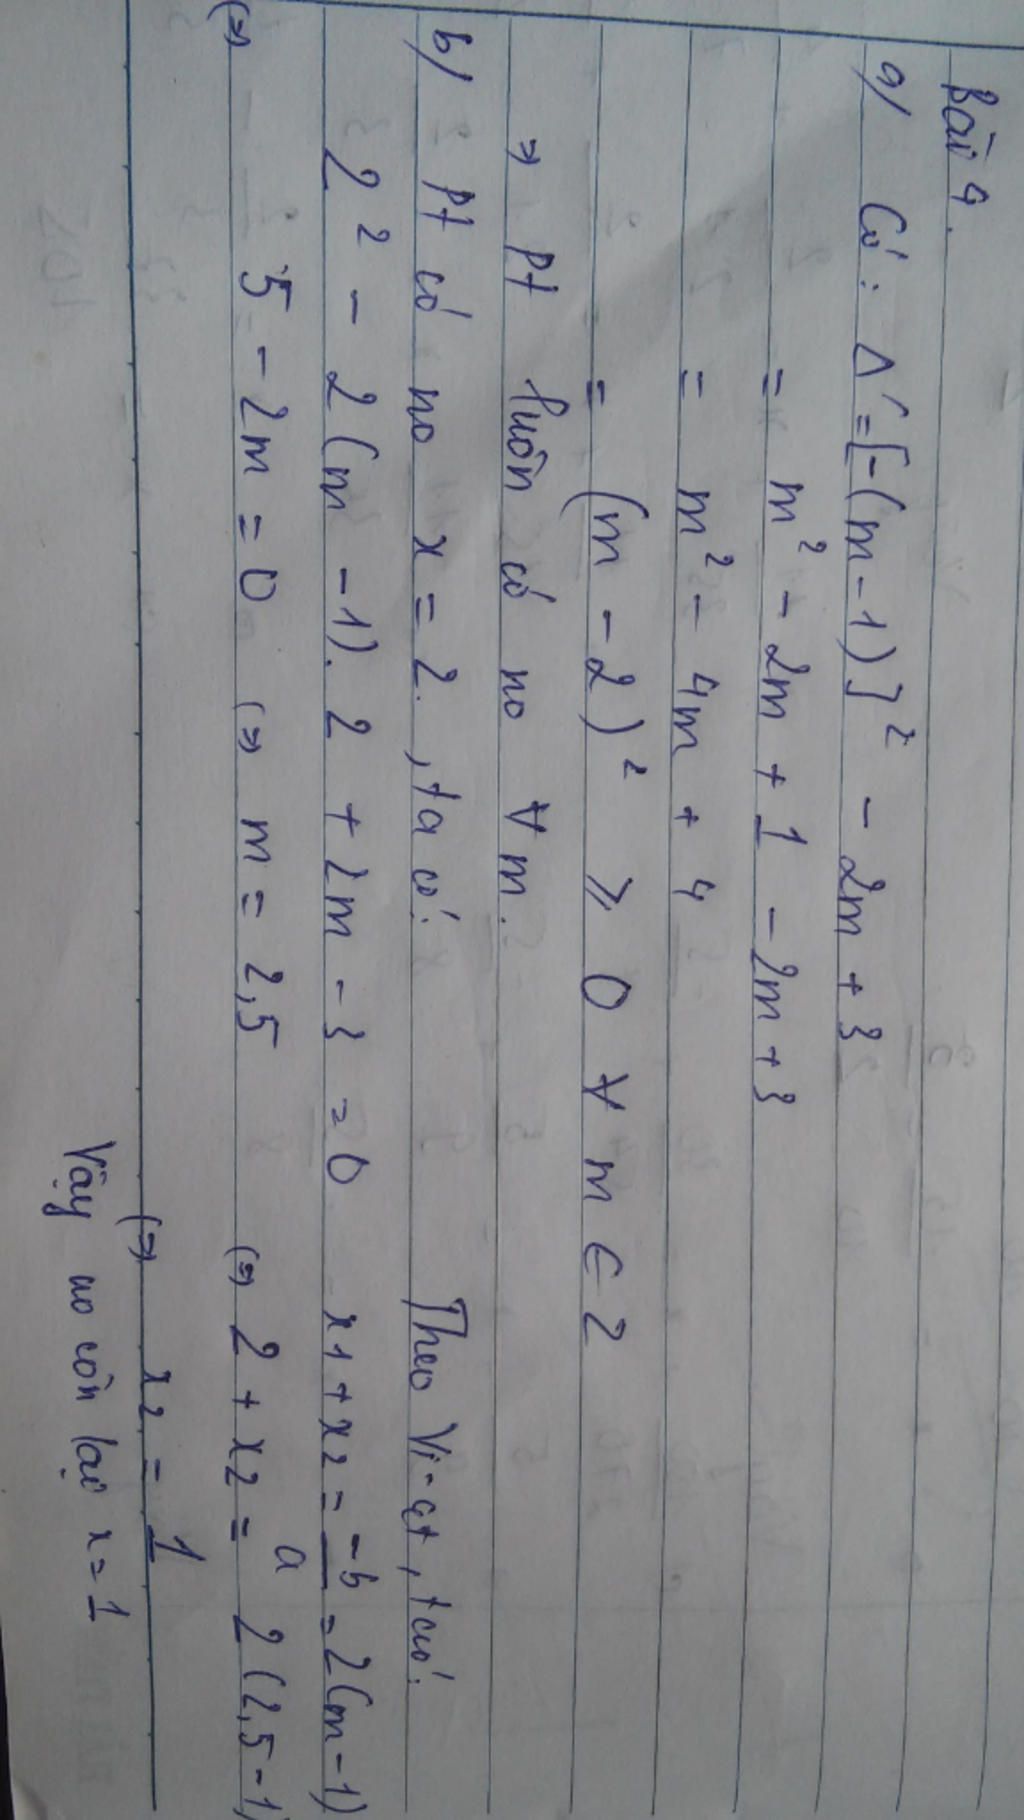 Bài 4.
a/ Có: Δ' = [-(m-1)]² - 2m + 3
= m² - 2m + 1 - 2m + 3
= m² - 4m + 4
= (m - 2)² ≥ 0 ∀ m ∈ Z
⇒ Pt luôn có no ∀ m.
b/ Pt có no x = 2, ta có:
2² - 2(m - 1). 2 + 2m - 3 = 0
(⇒) 5 - 2m = 0 (⇒ m = 2,5
Theo Vi-ét, tcó:
x1 + x2 = -b/a = 2(m-1)
(⇒ 2 + x2 = 2(2,5-1)
(⇒) x2 = 1
Vậy no còn lại x = 1